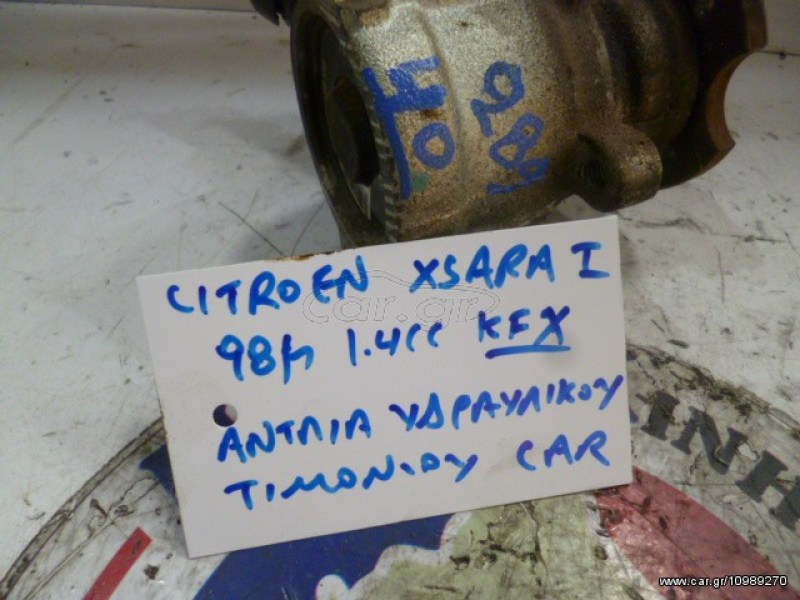 40
289
CITROEN XSARA I
car.gr
98μ 1.4cc KFX
ΑΝΤΛΙΑ ΥΔΡΑΥΛΙΚΟΥ
ΤΙΜΟΝΙΟΥ CAR
ΙΝΗ
www.car.gr/10989270